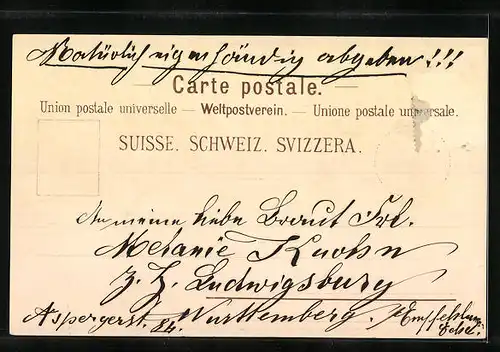 Natürlich eigenhändig abgeben!!!
Carte postale.
Union postale universelle — Weltpostverein. — Unione postale universale.
SUISSE. SCHWEIZ. SVIZZERA.
An meine liebe Braut Frl.
Melanie Kuohn
z. Z. Ludwigsburg
Aspergerst. 24. Württemberg.